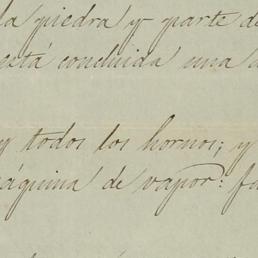 la piedra y parte de
está concluida una
y todos los hornos; y
áquina de vapor: